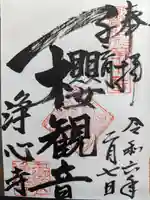 奉拝
子育
櫻観音
浄心寺
令和六年
二月七日